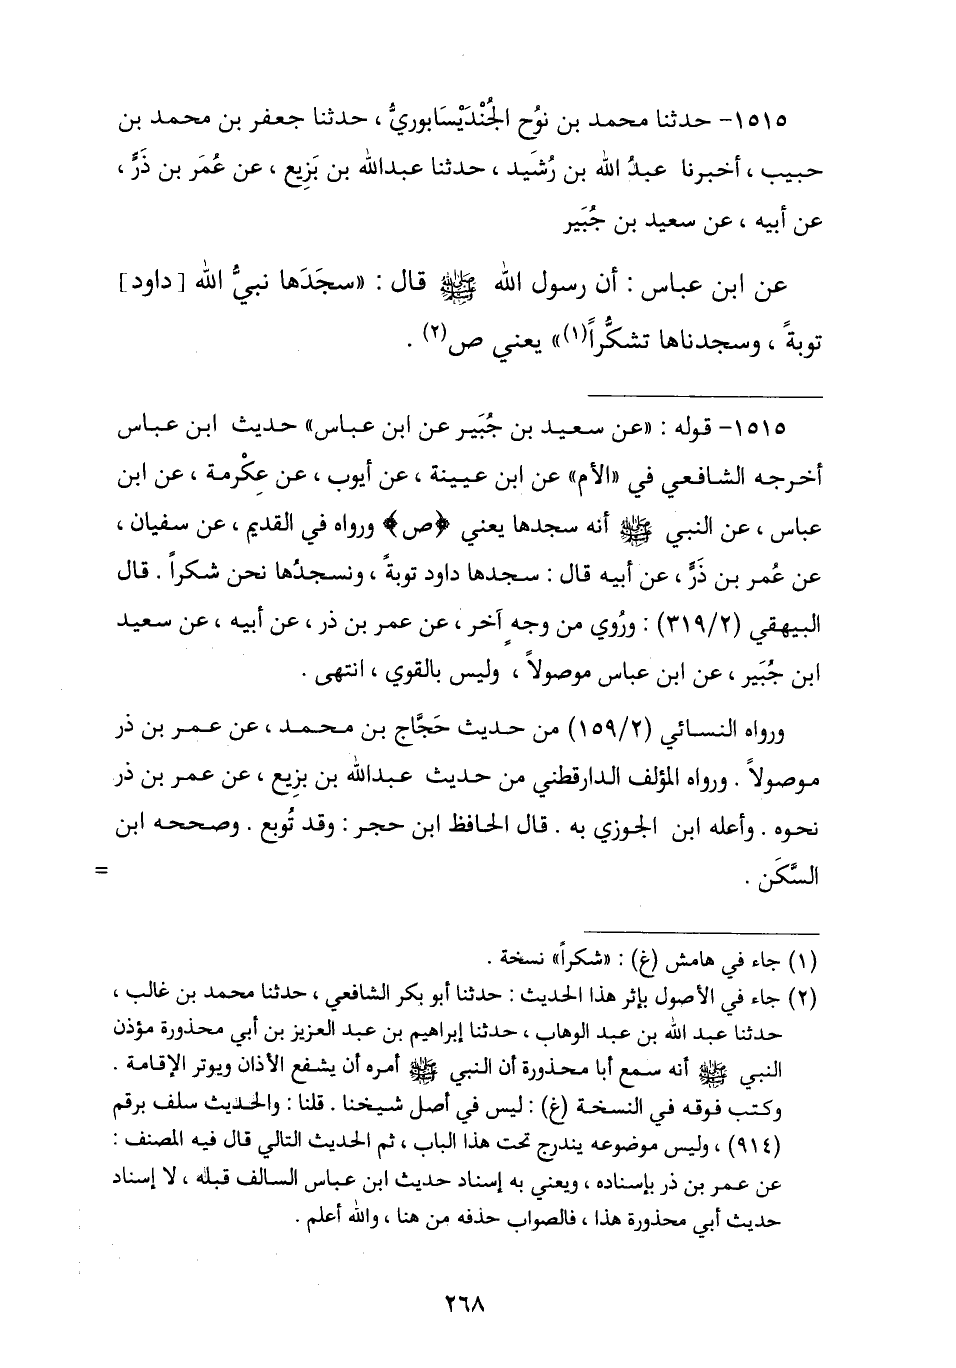 ١٥١٥- حدثنا محمد بن نوُح الجُنْدَيْسَابوريُّ ، حدثنا جعفر بن محمد بن
حبيب ، أخبرنا عبدُ الله بن رُشَيد ، حدثنا عبدالله بن بَزِيع ، عن عُمَر بن ذَرٍّ ،
عن أبيه ، عن سعيد بن جُبَير
عن ابن عباس : أن رسول الله ﷺ قال : «سجَدَها نبيُّ الله [داود]
توبةً ، وسجدناها تشكُّراً(١)» يعني ص(٢) .
١٥١٥- قوله : «عن سعيد بن جُبَير عن ابن عباس» حديث ابن عباس
أخرجه الشافعي في «الأم» عن ابن عيينة ، عن أيوب ، عن عكْرِمة ، عن ابن
عباس ، عن النبي ﷺ أنه سجدها يعني ﴿ص﴾ ورواه في القديم ، عن سفيان ،
عن عُمر بن ذَرٍّ ، عن أبيه قال : سجدها داود توبةً ، ونسجدُها نحن شكراً . قال
البيهقي (٣١٩/٢) : ورُوي من وجهٍ آخر ، عن عمر بن ذر ، عن أبيه ، عن سعيد
ابن جُبَير ، عن ابن عباس موصولاً ، وليس بالقوي ، انتهى .
ورواه النسائي (١٥٩/٢) من حديث حَجَّاج بن محمد ، عن عمر بن ذر
موصولاً . ورواه المؤلف الدارقطني من حديث عبدالله بن بزِيع ، عن عمر بن ذر
نحوه . وأعله ابن الجوزي به . قال الحافظ ابن حجر : وقد تُوبع . وصححه ابن
السَّكَن .
=
(١) جاء في هامش (غ) : «شكراً» نسخة .
(٢) جاء في الأصول بإثر هذا الحديث : حدثنا أبو بكر الشافعي ، حدثنا محمد بن غالب ،
حدثنا عبد الله بن عبد الوهاب ، حدثنا إبراهيم بن عبد العزيز بن أبي محذورة مؤذن
النبي ﷺ أنه سمع أبا محذورة أن النبي ﷺ أمره أن يشفع الأذان ويوتر الإقامة .
وكتب فوقه في النسخة (غ) : ليس في أصل شيخنا . قلنا : والحديث سلف برقم
(٩١٤) ، وليس موضوعه يندرج تحت هذا الباب ، ثم الحديث التالي قال فيه المصنف :
عن عمر بن ذر بإسناده ، ويعني به إسناد حديث ابن عباس السالف قبله ، لا إسناد
حديث أبي محذورة هذا ، فالصواب حذفه من هنا ، والله أعلم .
٢٦٨